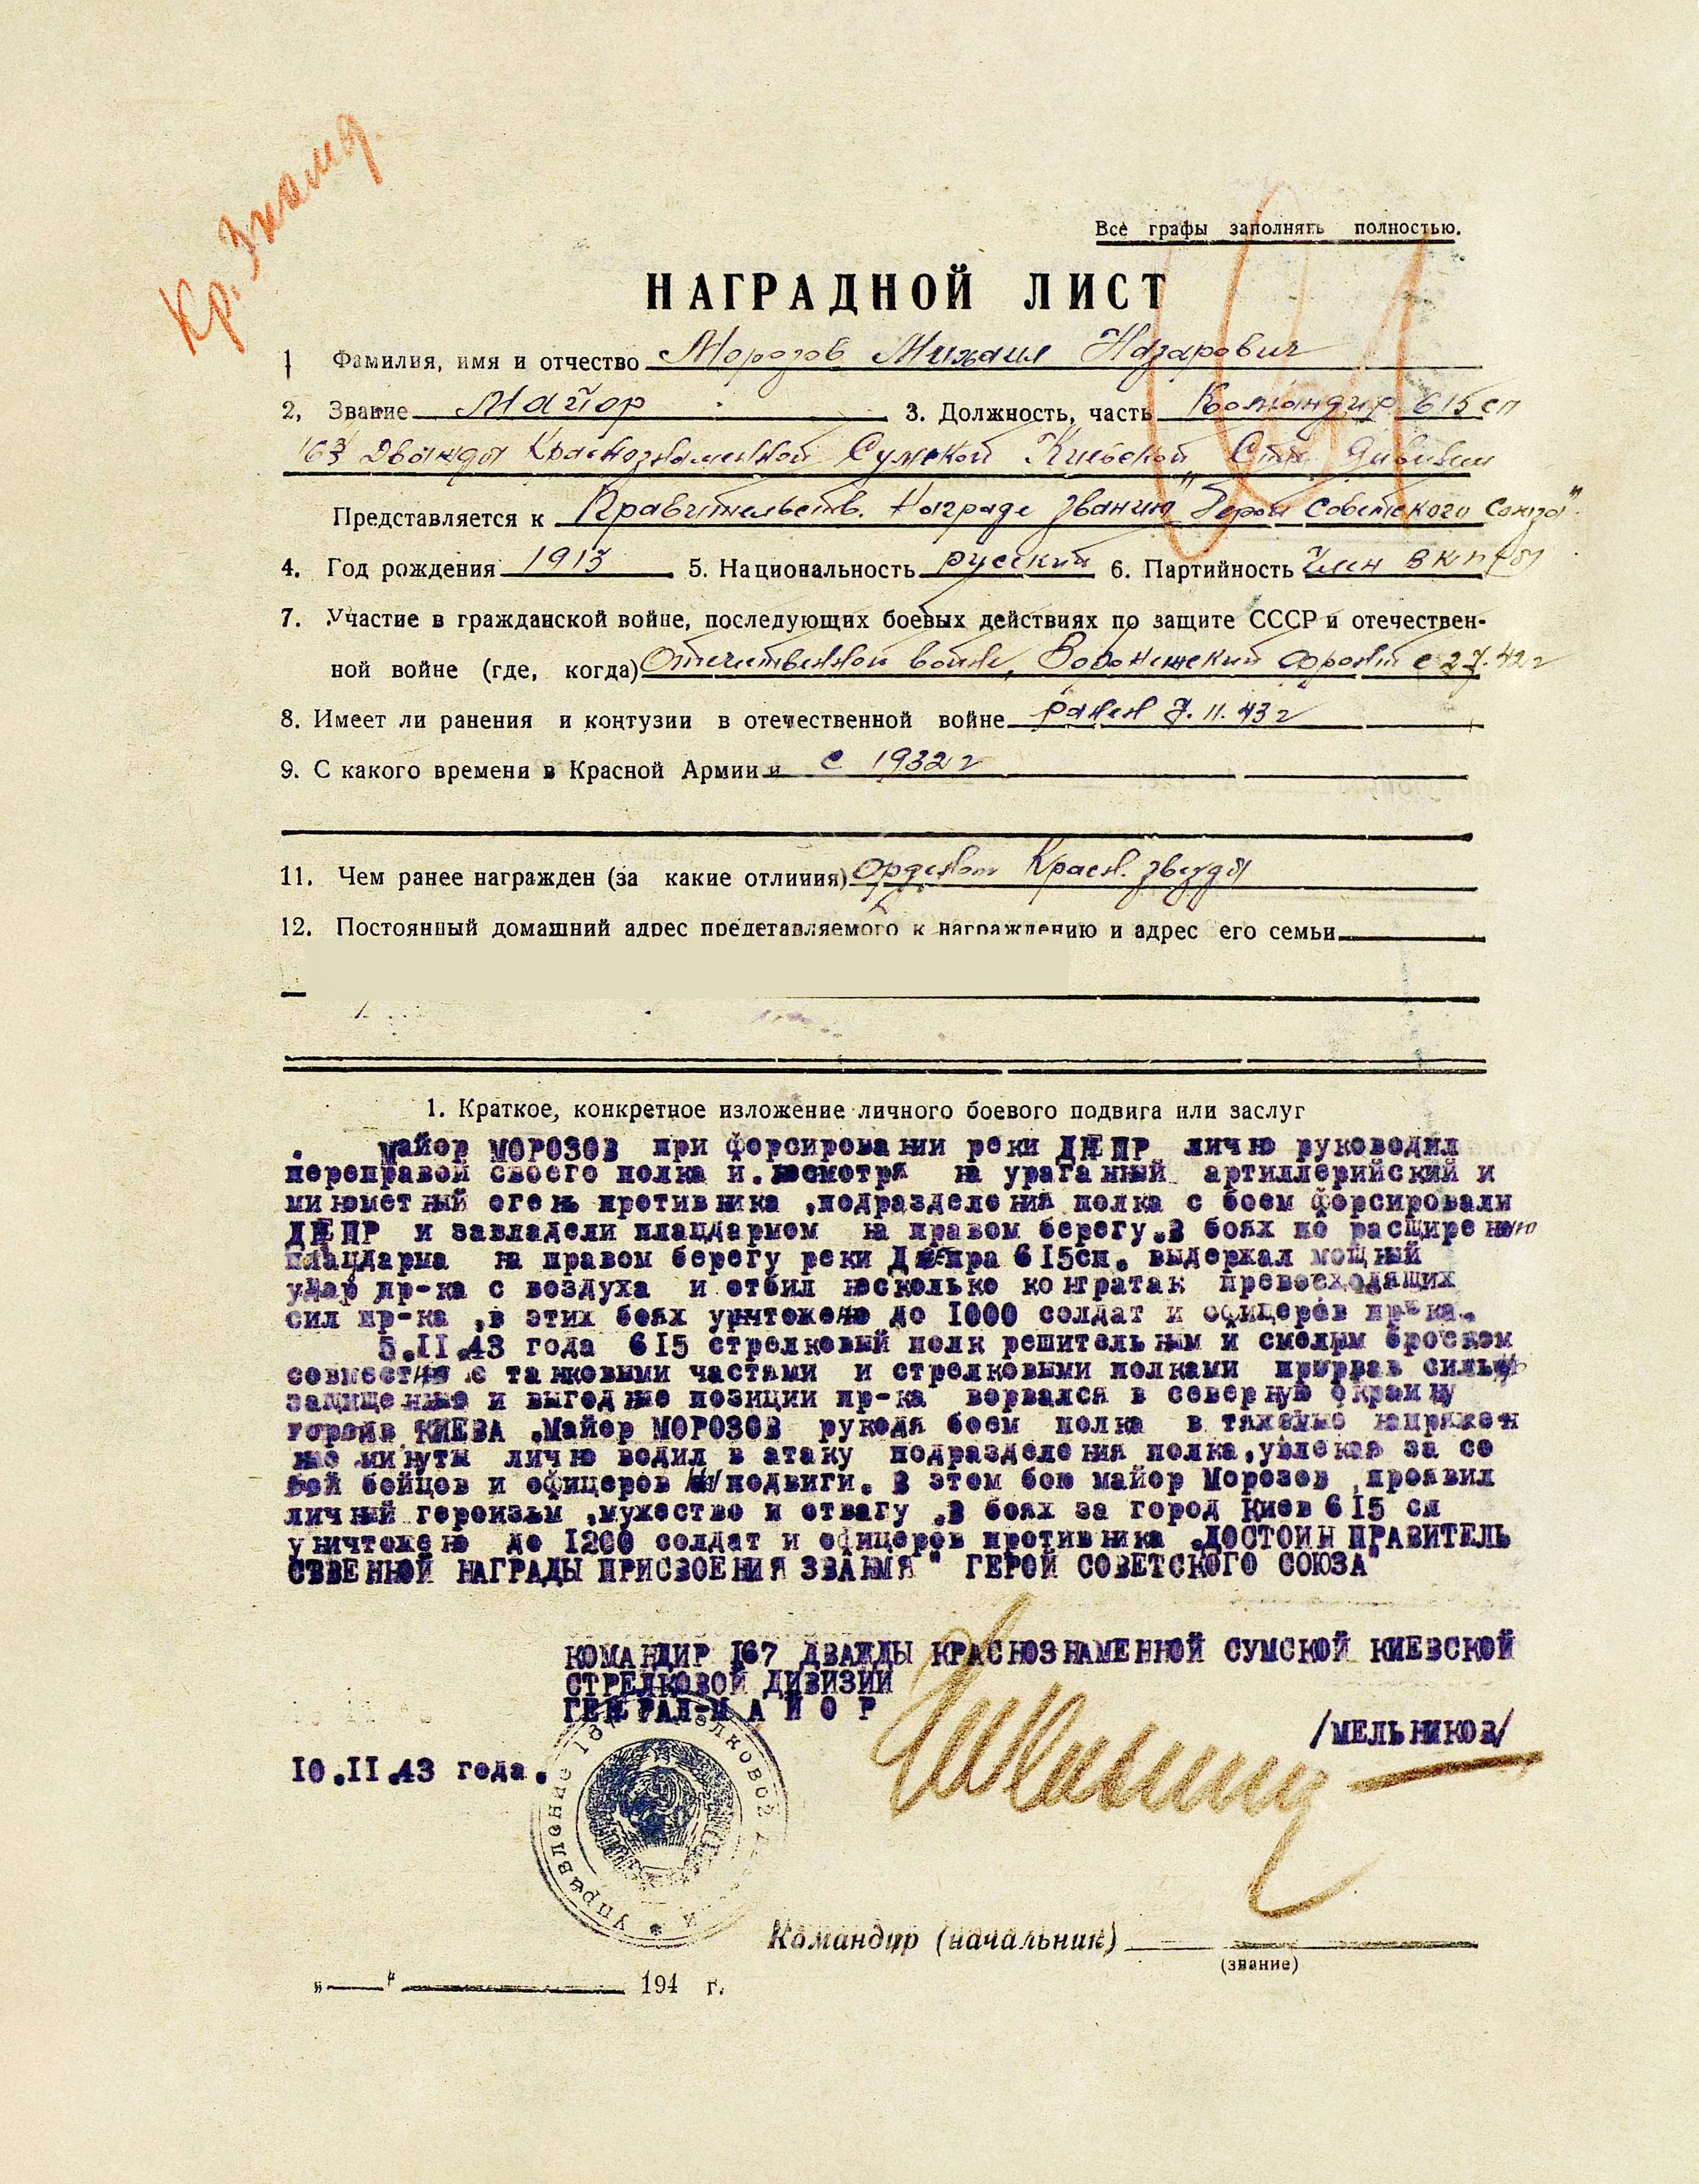 Кр. Знамя.
Все графы заполнять полностью.
НАГРАДНОЙ ЛИСТ
1 Фамилия, имя и отчество Морозов Михаил Назарович
2, Звание Майор 3. Должность, часть Командир 615 сп
167 Дважды Краснознаменной Сумской Киевской Стр. дивизии
Представляется к Правительств. награде званию "Герой Советского Союза".
4. Год рождения 1913 5. Национальность русский 6. Партийность член ВКП(б)
7. Участие в гражданской войне, последующих боевых действиях по защите СССР и отечествен-
ной войне (где, когда) Отечественной войне, Воронежский фронт с 27.42 г
8. Имеет ли ранения и контузии в отечественной войне ранен 7.11.43 г
9. С какого времени в Красной Армии и с 1932 г
11. Чем ранее награжден (за какие отличия) орденом Красн. звезды
12. Постоянный домашний адрес представляемого к награждению и адрес его семьи
1. Краткое, конкретное изложение личного боевого подвига или заслуг
Майор МОРОЗОВ при форсировании реки ДНЕПР лично руководил
переправой своего полка и. несмотря на ураганный артиллерийский и
минометный огень противника ,подразделения полка с боем форсировали
ДНЕПР и завладели плацдармом на правом берегу.В боях по расширению
плацдарма на правом берегу реки Днепра 615сп. выдержал мощный
удар пр-ка с воздуха и отбил несколько контратак превосходящих
сил пр-ка ,в этих боях уничтожено до 1000 солдат и офицеров пр-ка.
5.II.43 года 615 стрелковый полк решительным и смелым броском
совместно с танковыми частями и стрелковыми полками прорвав сильно
защищенные и выгодные позиции пр-ка ворвался в северную окраину
города КИЕВА .Майор МОРОЗОВ рукодя боем полка в тяжелые напряжен
ные минуты лично водил в атаку подразделения полка,увлекая за со
бой бойцов и офицеров на подвиги. В этом бою майор Морозов проявил
личный героизьм ,мужество и отвагу .В боях за город Киев 615 сп
уничтожено до 1200 солдат и офицеров противника .ДОСТОИН ПРАВИТЕЛЬ
СТВЕННОЙ НАГРАДЫ ПРИСВОЕНИЯ ЗВАНИЯ " ГЕРОЙ СОВЕТСКОГО СОЮЗА"
КОМАНДИР 167 ДВАЖДЫ КРАСНОЗНАМЕННОЙ СУМСКОЙ КИЕВСКОЙ
СТРЕЛКОВОЙ ДИВИЗИИ
ГЕНЕРАЛ-М А Й О Р
/МЕЛЬНИКОВ/
10.II.43 года.
Управление стрелковой
Командир (начальник)
(звание)
„ " 194 г.